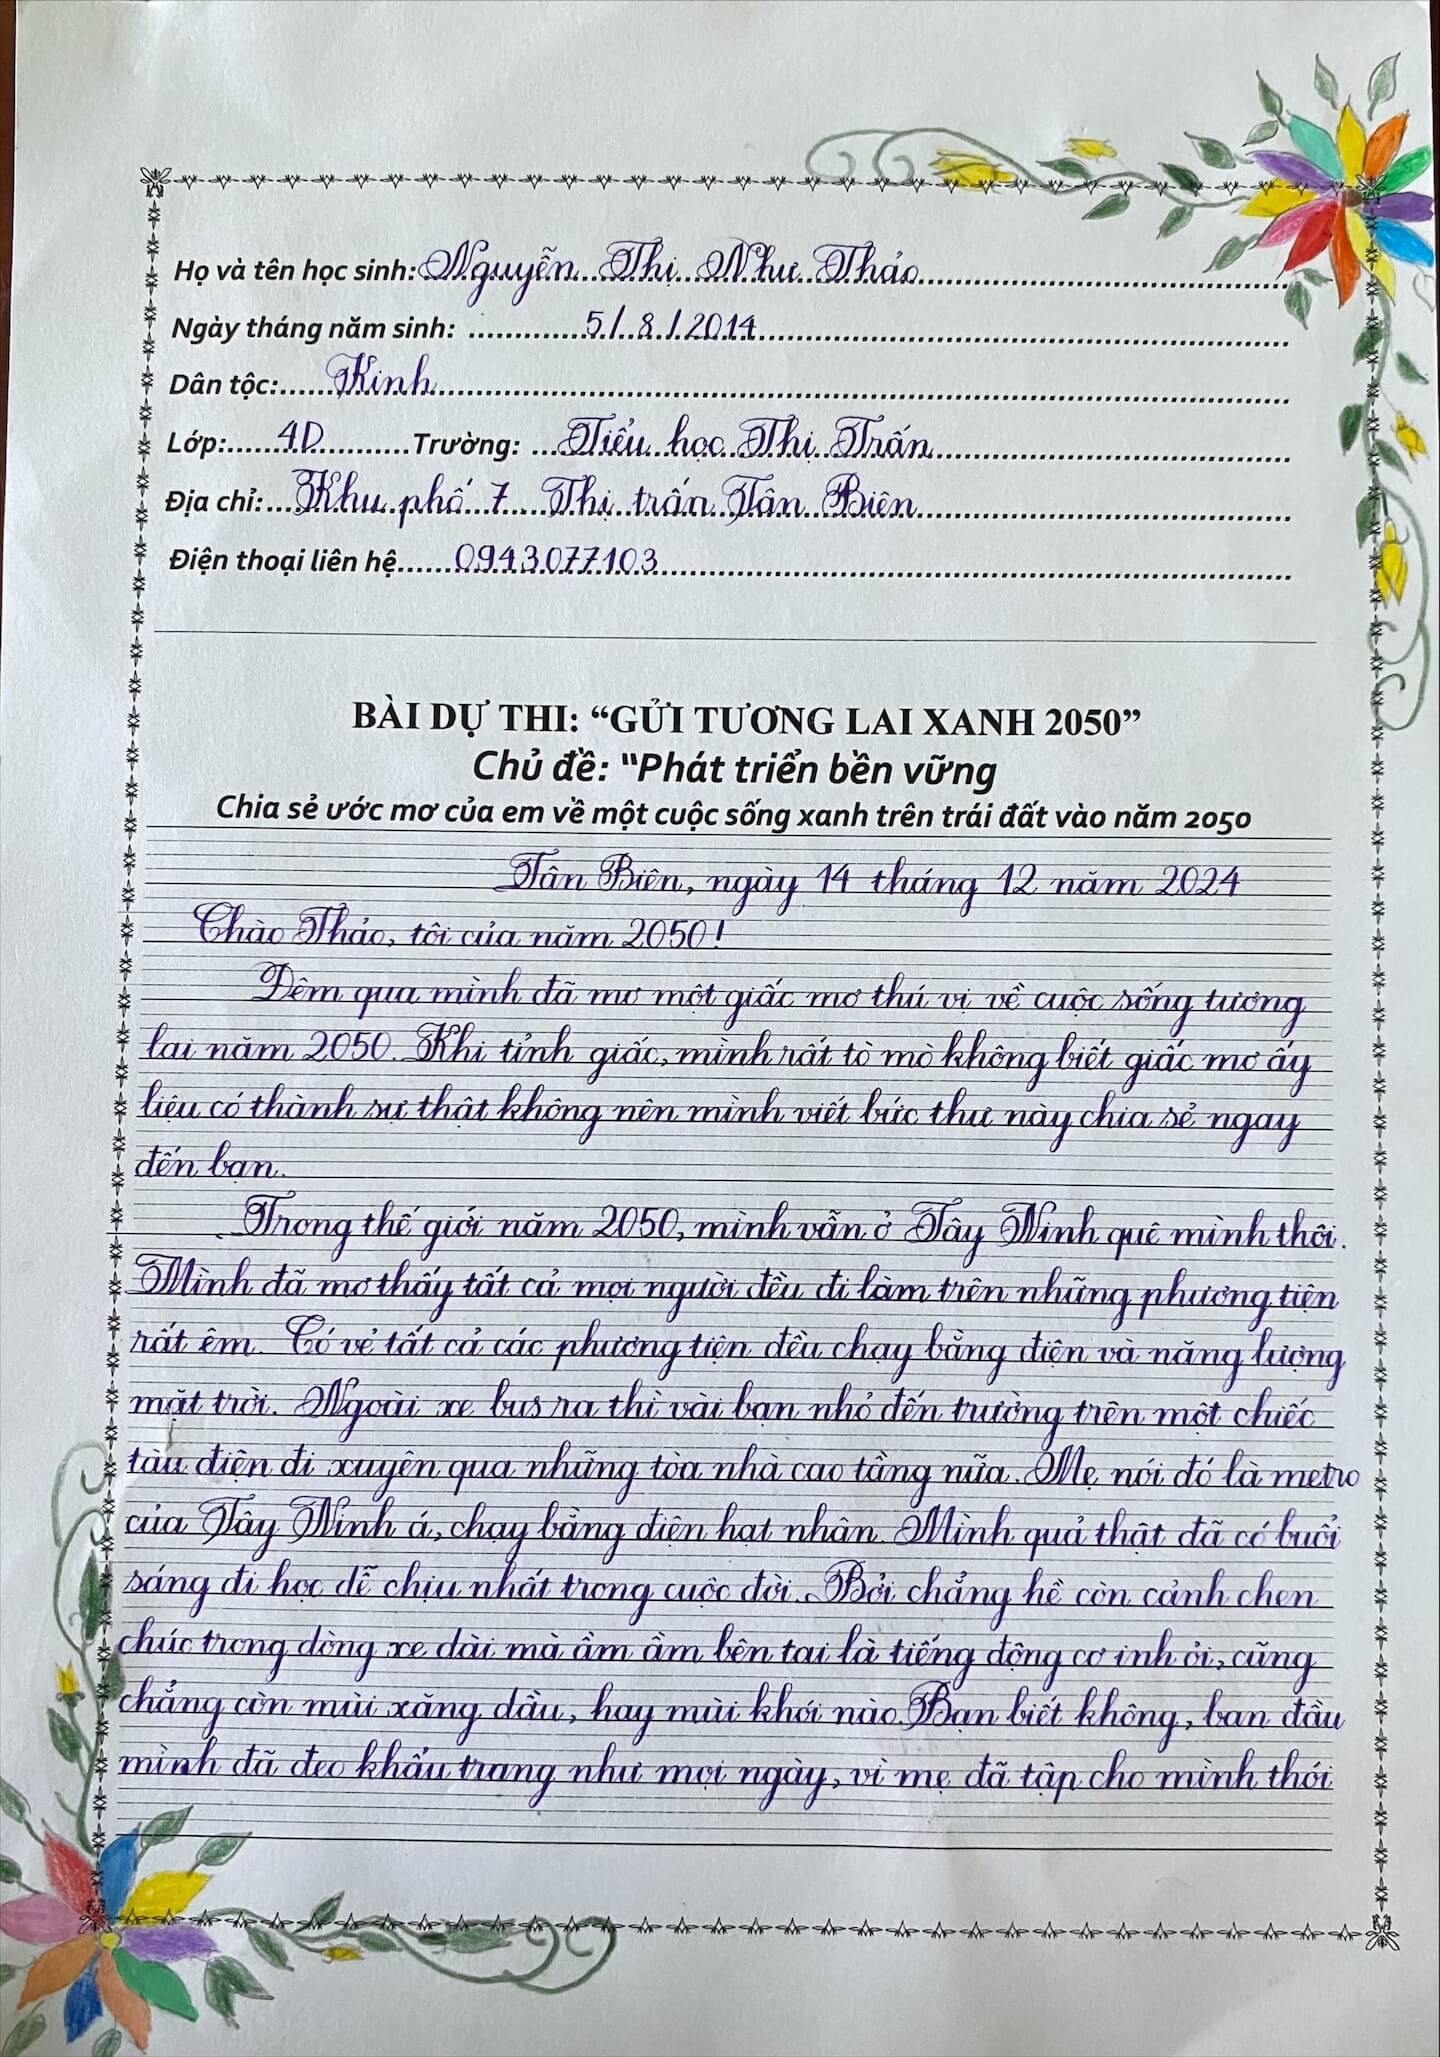 Họ và tên học sinh: Nguyễn Thị Như Thảo
Ngày tháng năm sinh: 5/8/2014
Dân tộc: Kinh
Lớp: 4D Trường: Tiểu học Thị Trấn
Địa chỉ: Khu phố 7 Thị trấn Tân Biên
Điện thoại liên hệ 0943077103
BÀI DỰ THI: “GỬI TƯƠNG LAI XANH 2050”
Chủ đề: “Phát triển bền vững
Chia sẻ ước mơ của em về một cuộc sống xanh trên trái đất vào năm 2050
Tân Biên, ngày 14 tháng 12 năm 2024
Chào Thảo, tôi của năm 2050!
Đêm qua mình đã mơ một giấc mơ thú vị về cuộc sống tương
lai năm 2050. Khi tỉnh giấc, mình rất tò mò không biết giấc mơ ấy
liệu có thành sự thật không nên mình viết bức thư này chia sẻ ngay
đến bạn.
Trong thế giới năm 2050, mình vẫn ở Tây Ninh quê mình thôi.
Mình đã mơ thấy tất cả mọi người đều đi làm trên những phương tiện
rất êm. Có vẻ tất cả các phương tiện đều chạy bằng điện và năng lượng
mặt trời. Ngoài xe bus ra thì vài bạn nhỏ đến trường trên một chiếc
tàu điện đi xuyên qua những tòa nhà cao tầng nữa. Mẹ nói đó là metro
của Tây Ninh á, chạy bằng điện hạt nhân. Mình quả thật đã có buổi
sáng đi học dễ chịu nhất trong cuộc đời. Bởi chẳng hề còn cảnh chen
chúc trong dòng xe dài mà ầm ầm bên tai là tiếng động cơ inh ỏi, cũng
chẳng còn mùi xăng dầu, hay mùi khói nào. Bạn biết không, ban đầu
mình đã đeo khẩu trang như mọi ngày, vì mẹ đã tập cho mình thói